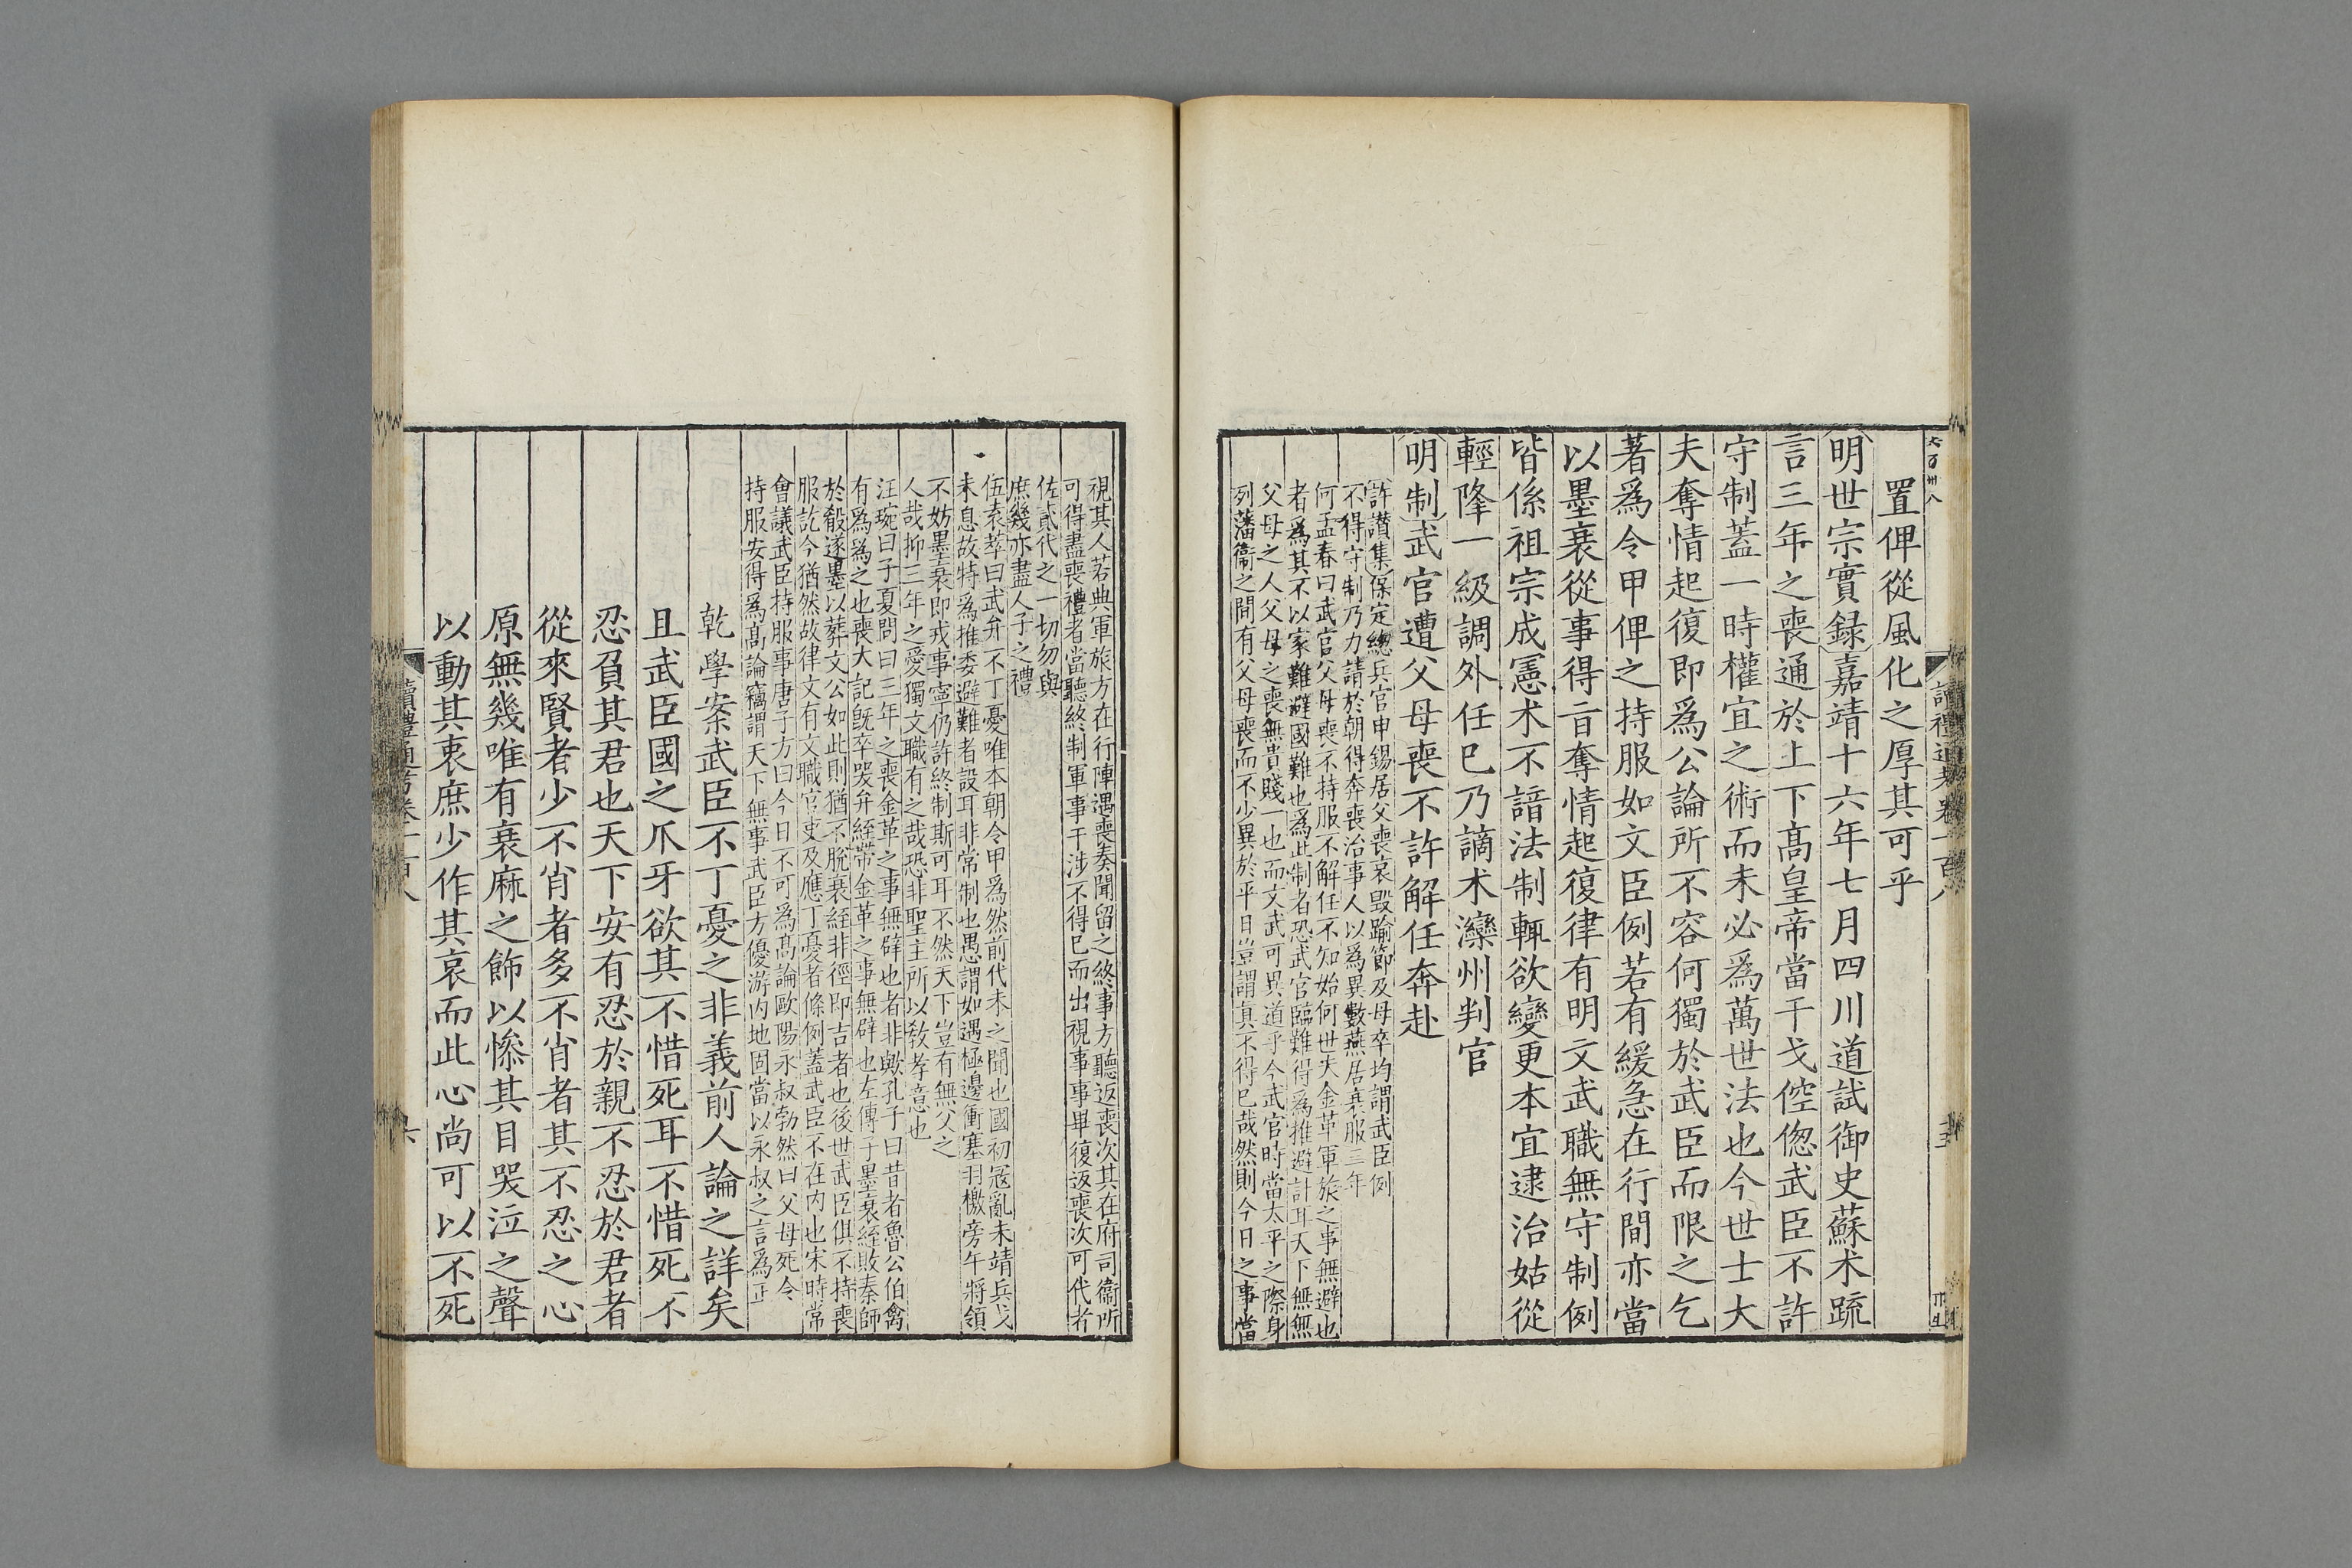 六百卅八
讀禮通考卷一百八
十五
置俾從風化之厚其可乎
明世宗實録嘉靖十六年七月四川道試御史蘇术疏
言三年之喪通於上下髙皇帝當干戈倥傯武臣不許
守制蓋一時權宜之術而未必爲萬世法也今世士大
夫奪情起復即爲公論所不容何獨於武臣而限之乞
著爲令甲俾之持服如文臣例若有緩急在行間亦當
以墨衰從事得㫖奪情起復律有明文武職無守制例
皆係祖宗成憲术不諳法制輒欲變更本宜逮治姑從
輕降一級調外任巳乃謫术灤州判官
明制武官遭父母喪不許解任奔赴
許讃集保定總兵官申錫居父喪哀毁踰節及母卒均謂武臣例
不得守制乃力請於朝得奔喪治事人以爲異數燕居衰服三年
何孟春曰武官父母喪不持服不解任不知始何世夫金革軍旅之事無避也
者爲其不以家難避國難也爲此制者恐武官臨難得爲推避計耳天下無無
父母之人父母之喪無貴賤一也而文武可異道乎今武官時當太平之際身
列藩衞之間有父母喪而不少異於平日豈謂真不得巳哉然則今日之事當
視其人若典軍旅方在行陣遇喪奏聞留之終事方聽返喪次其在府司衞所
可得盡喪禮者當聽終制軍事干涉不得巳而出視事事畢復返喪次可代者
佐貳代之一切勿與
庶幾亦盡人子之禮
伍袁萃曰武弁不丁憂唯本朝令甲為然前代未之聞也國初冦亂未靖兵戈
未息故特爲推委避難者設耳非常制也愚謂如遇極邊衝塞羽檄旁午將領
不妨墨衰即戎事寧仍許終制斯可耳不然天下豈有無父之
人哉抑三年之愛獨文職有之哉恐非聖主所以教孝意也
汪琬曰子夏問曰三年之喪金革之事無辟也者非與孔子曰昔者魯公伯禽
有爲爲之也喪大記旣卒哭弁絰帶金革之事無辟也左傳子墨衰絰敗秦師
於殽遂墨以葬文公如此則猶不脫衰絰非徑即吉者也後世武臣俱不持喪
服訖今猶然故律文有文職官吏及應丁憂者條例蓋武臣不在内也宋時常
會議武臣持服事唐子方曰今日不可爲髙論歐陽永叔勃然曰父母死令
持服安得爲髙論竊謂天下無事武臣方優游内地固當以永叔之言爲正
乾學案武臣不丁憂之非義前人論之詳矣
且武臣國之爪牙欲其不惜死耳不惜死不
忍負其君也天下安有忍於親不忍於君者
從來賢者少不肖者多不肖者其不忍之心
原無幾唯有衰麻之飾以慘其目哭泣之聲
以動其衷庶少作其哀而此心尚可以不死
讀禮通考卷一百八